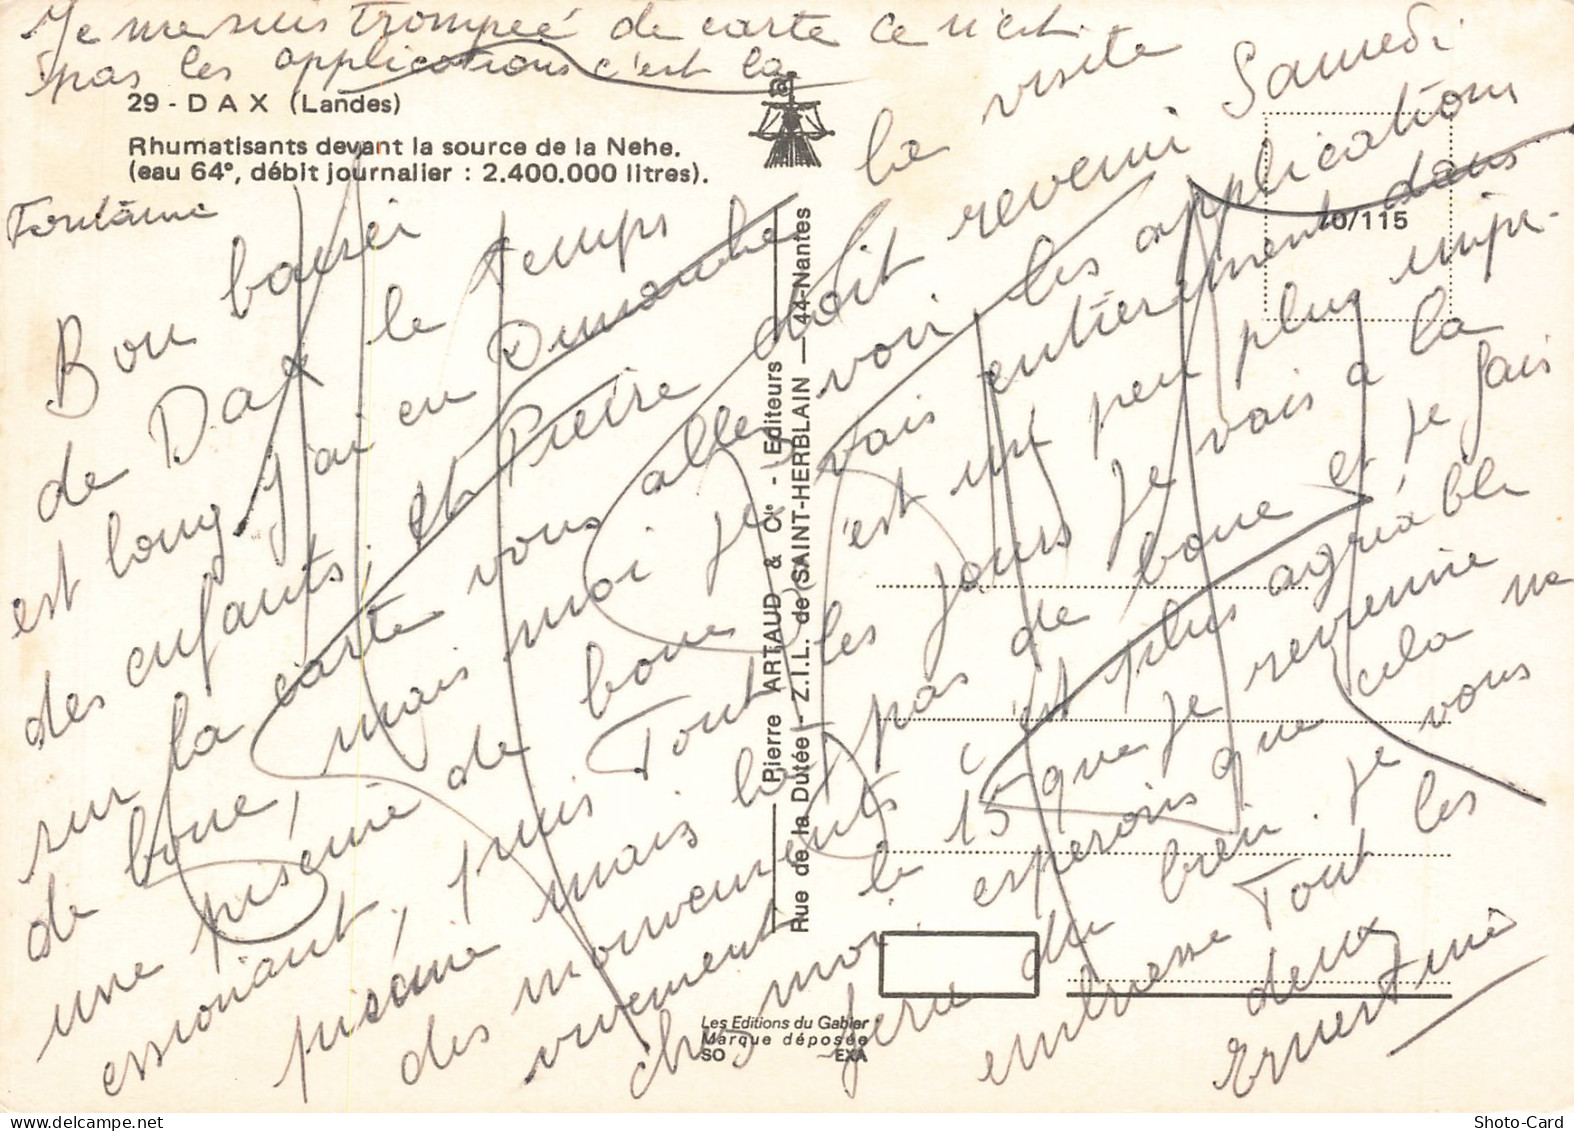 Je me suis trompeé de carte ce n'est
pas les applications c'est la
29 - DAX (Landes)
Rhumatisants devant la source de la Nehe.
(eau 64°, débit journalier : 2.400.000 litres).
Fontaine
Bon baiser
de Dax le temps
est long j'ai eu Dimanche la visite
des enfants, et Pierre doit revenir Samedi
sur la carte vous allez voir les applications
de boue, mais moi je vais entièrement dans
une piscine de boue c'est un peu plus impr-
essionant, puis Tout les jours je vais a la
piscine mais la pas de boue et je fais
des mouvements c'est plus agréable
vivement le 15 que je revienne
ches moi. esperons que cela me
fera du bien. Je vous
embrasse Tout les
deux
Ernestine
Pierre ARTAUD & Cie - Editeurs
Rue de la Dutée - Z.I.L. de SAINT-HERBLAIN — 44-Nantes
40/115
Les Editions du Gabier
Marque déposée
SO EXA
Shoto-Card